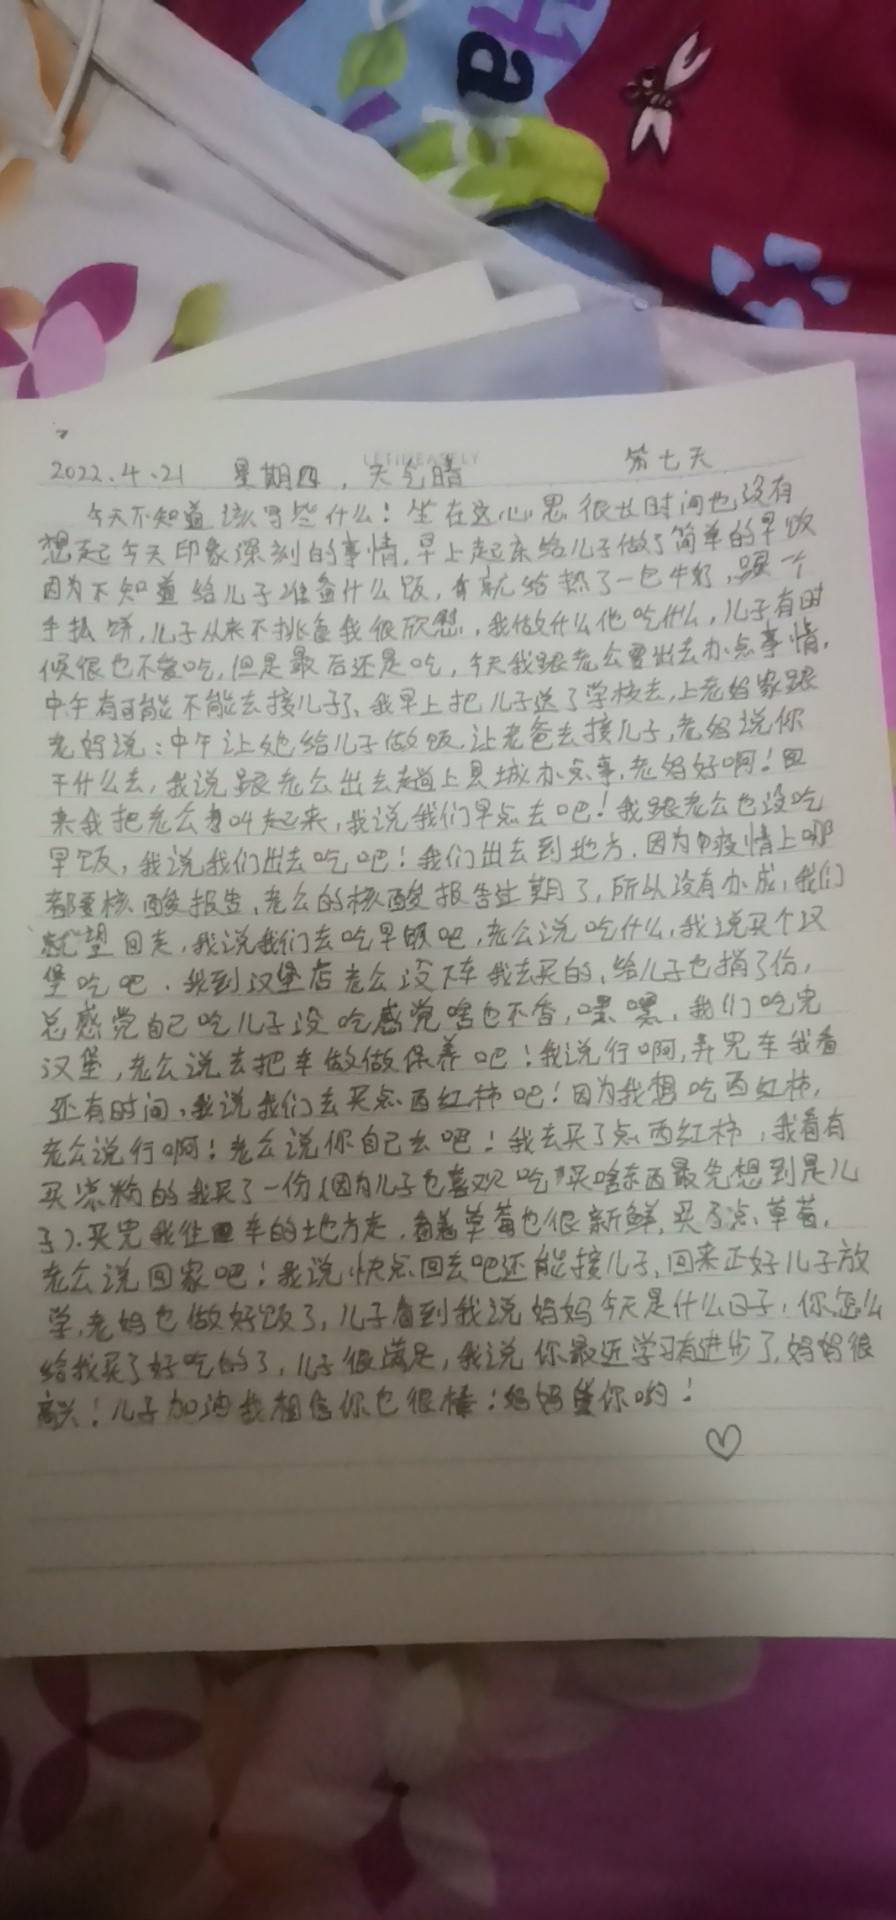 Ha
LETIMEASELY
2022.4.21 星期四，天气晴 第七天
今天不知道该写些什么！坐在这心思很长时间也没有
想起今天印象深刻的事情，早上起床给儿子做了简单的早饭
因为不知道给儿子准备什么饭，就给热了一包牛奶，跟一个
手抓饼，儿子从来不挑食我很欣慰，我做什么他吃什么，儿子有时
候很也不爱吃，但是最后还是吃，今天我跟老公要出去办点事情，
中午有可能不能去接儿子了，我早上把儿子送了学校去，上老妈家跟
老妈说：中午让她给儿子做饭，让老爸去接儿子，老妈说你
干什么去，我说跟老公出去趟上县城办点事，老妈好啊！回
来我把老公叫起来，我说我们早点去吧！我跟老公也没吃
早饭，我说我们出去吃吧！我们出去到地方，因为疫情上哪
都要核酸报告，老公的核酸报告过期了，所以没有办成，我们
就望回走，我说我们去吃早饭吧，老公说吃什么，我说买个汉
堡吃吧，我到汉堡店老公没下车我去买的，给儿子也捎了份，
总感觉自己吃儿子没吃感觉啥也不香，嘿嘿，我们吃完
汉堡，老公说去把车做做保养吧！我说行啊，弄完车我看
还有时间，我说我们去买点西红柿吧！因为我想吃西红柿，
老公说行啊！老公说你自己去吧！我去买了点西红柿，我看有
买凉粉的我买了一份（因为儿子也喜欢吃，买啥东西最先想到是儿
子）.买完我往回车的地方走，看着草莓也很新鲜，买了点草莓，
老公说回家吧！我说快点回去吧还能接儿子，回来正好儿子放
学，老妈也做好饭了，儿子看到我说妈妈今天是什么日子，你怎么
给我买了好吃的了，儿子很满足，我说你最近学习有进步了，妈妈很
高兴！儿子加油我相信你也很棒！妈妈爱你哟！